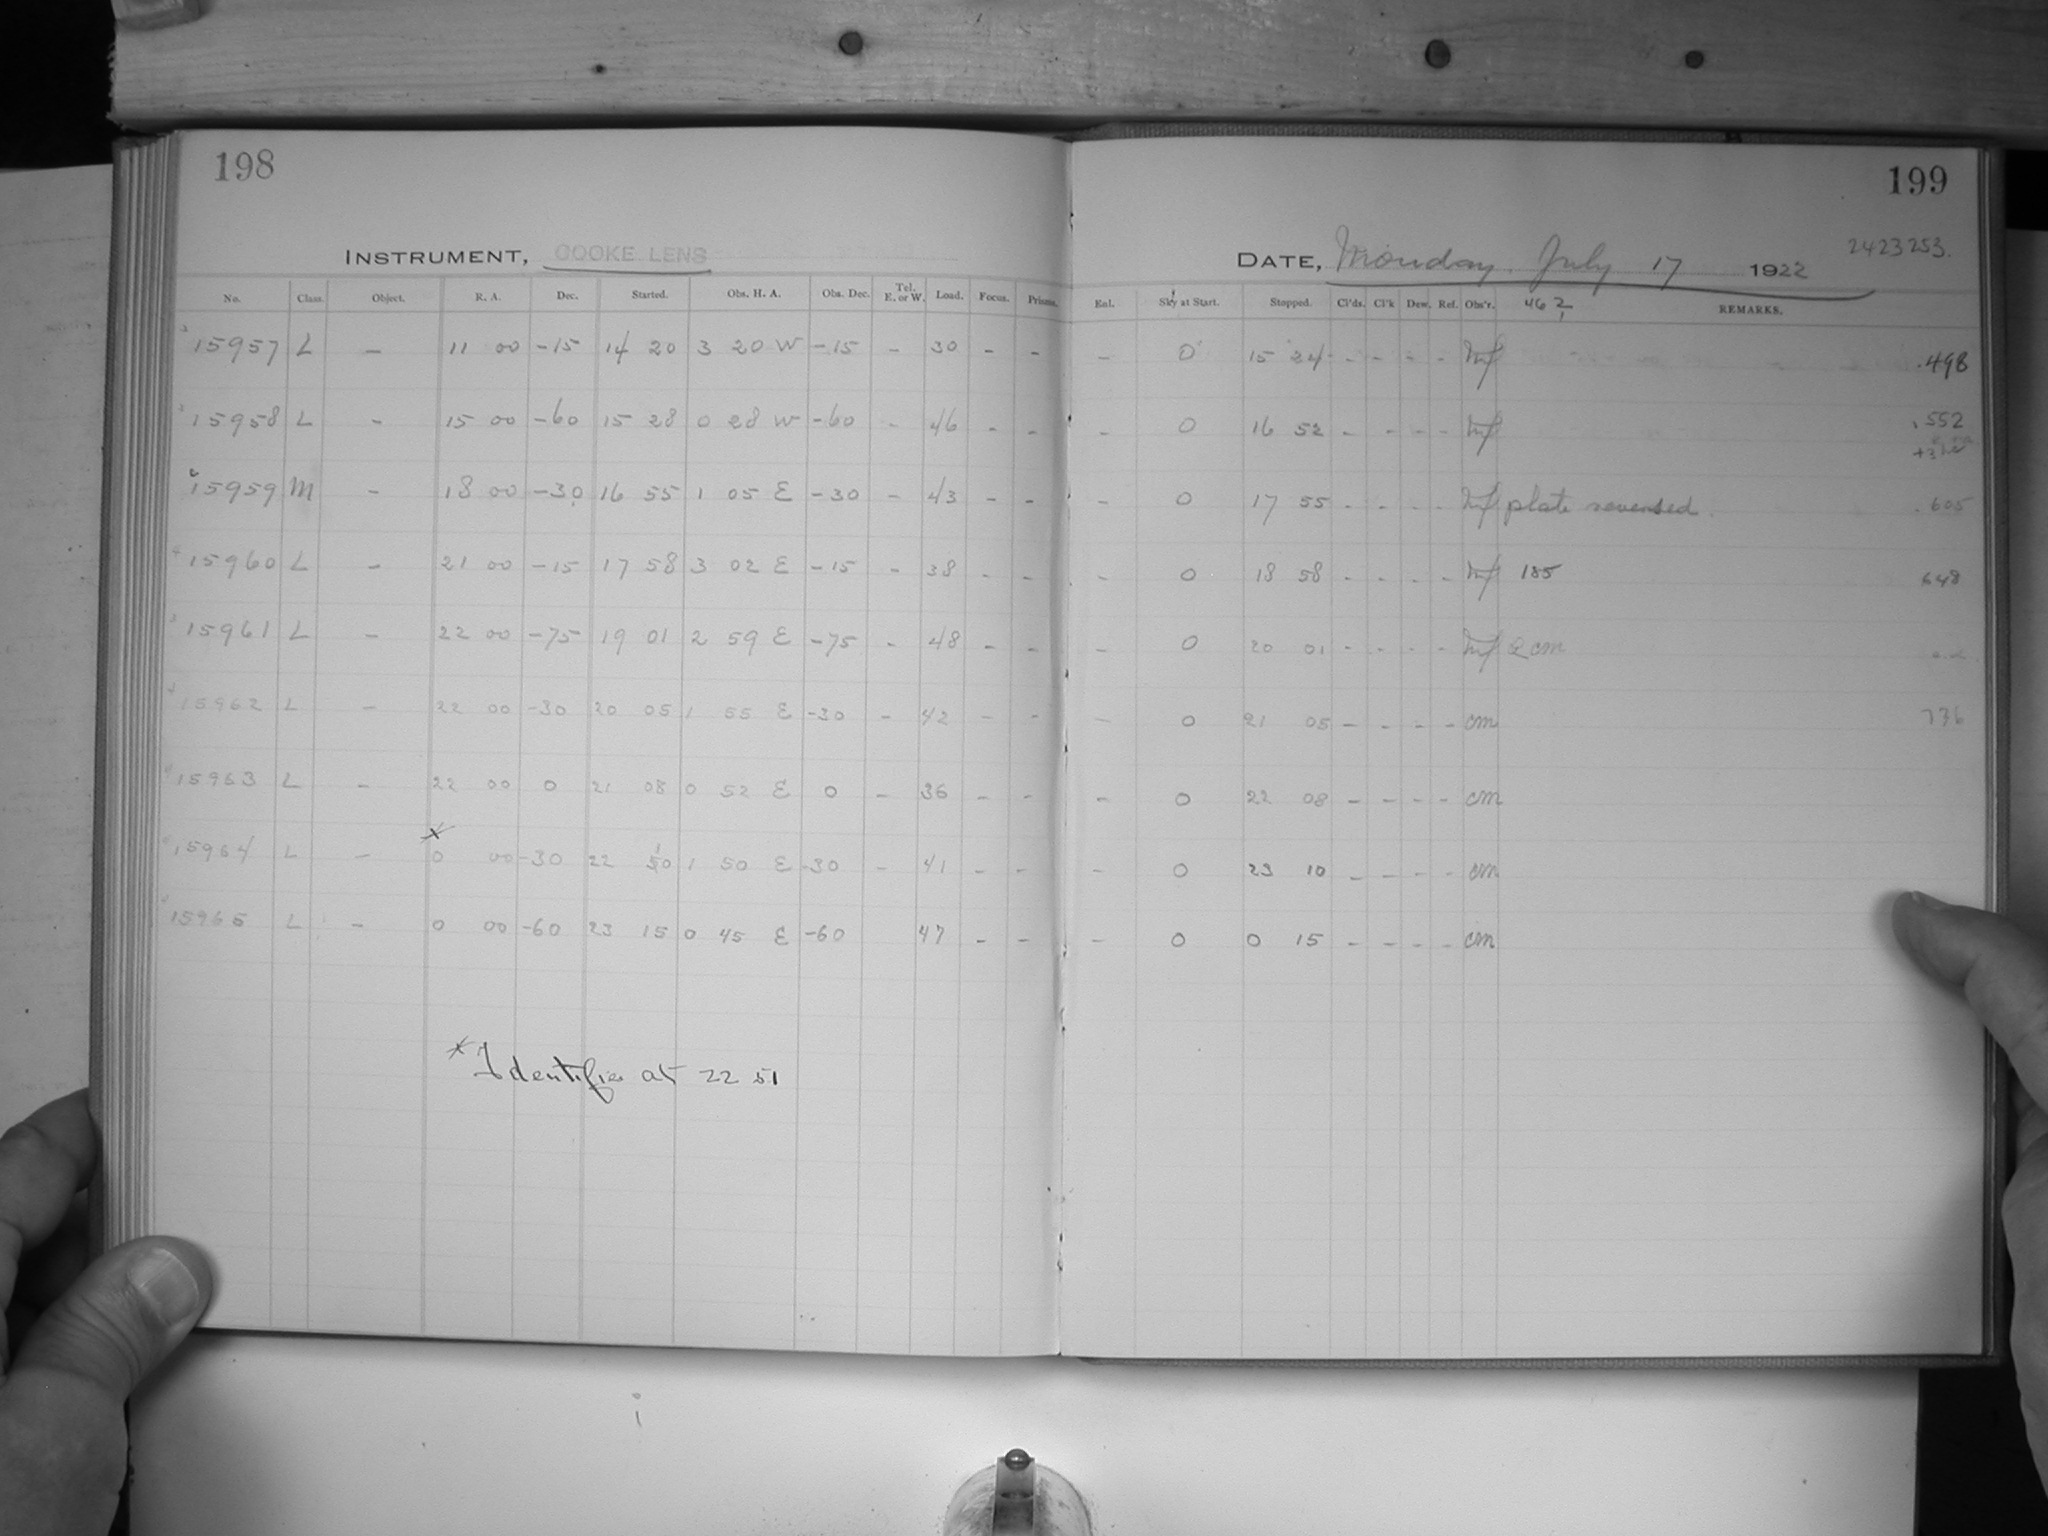 198
199
INSTRUMENT, COOKE LENS
DATE, Monday July 17 1922 2423253.
No. Class. Object. R. A. Dec. Started. Obs. H. A. Obs. Dec. Tel. E. or W. Load. Focus. Prisms. Enl. Sky at Start. Stopped. Cl'ds. Cl'k Dew. Ref. Obs'r. 46 2/1 REMARKS.
15957 L - 11 00 -15 14 20 3 20 W -15 - 30 - - - 0 15 24 - - - - .498
15958 L - 15 00 -60 15 28 0 28 W -60 - 46 - - - 0 16 52 - - - - .552
15959 M - 18 00 -30 16 55 1 05 E -30 - 43 - - - 0 17 55 - - - - plate reversed. .605
15960 L - 21 00 -15 17 58 3 02 E -15 - 38 - - - 0 18 58 - - - - 185 648
15961 L - 22 00 -75 19 01 2 59 E -75 - 48 - - - 0 20 01 - - - - & cm
15962 L - 22 00 -30 20 05 1 55 E -30 - 42 - - - 0 21 05 - - - - cm 736
15963 L - 22 00 0 21 08 0 52 E 0 - 36 - - - 0 22 08 - - - - cm
15964 L - * 0 00 -30 22 10 1 50 E -30 - 41 - - - 0 23 10 - - - - cm
15965 L - 0 00 -60 23 15 0 45 E -60 47 - - - 0 0 15 - - - - cm
* Identifies at 22 51